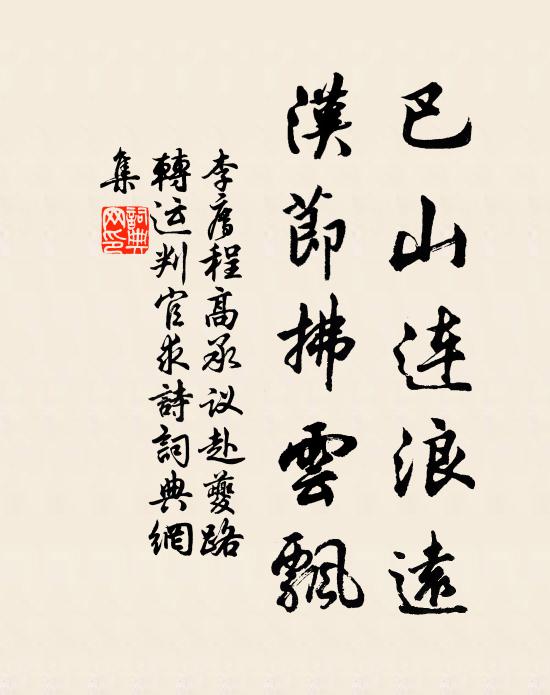 巴山连浪遠
漢節拂雲飄
李廌程高承议赴夔路
轉运判官求詩詞典網
集
詞典
网印